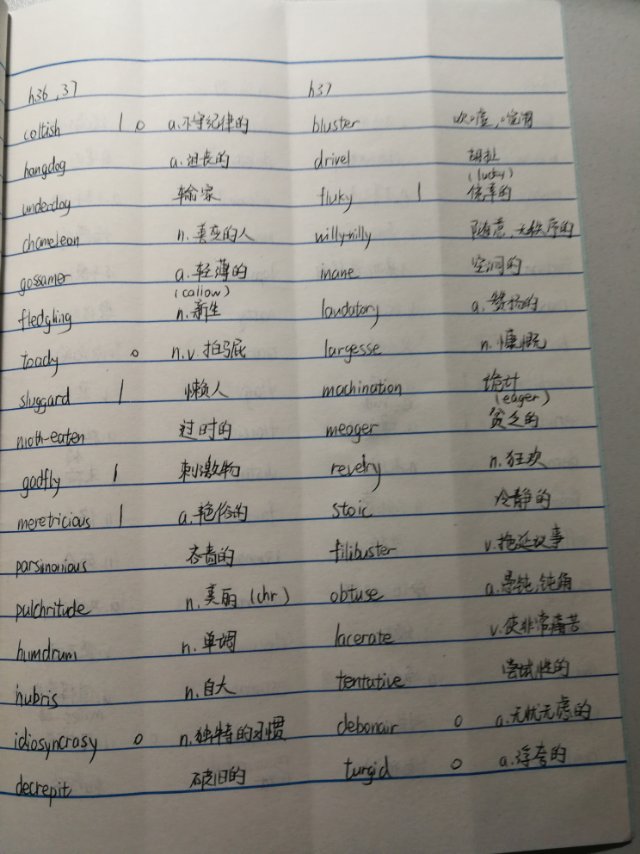 h36, 37 h37
coltish 1 0 a.不守纪律的 bluster 吹嘘,咆哮
hangdog a.沮丧的 drivel 胡扯
underdog 输家 fluky 1 (lucky) 侥幸的
chameleon n.善变的人 willy-nilly 随意,无秩序的
gossamer a.轻薄的 inane 空洞的
fledgling (callow) n.新生 laudatory a.赞扬的
toady 0 n.v.拍马屁 largesse n.慷慨
sluggard 1 懒人 machination 诡计
moth-eaten 过时的 meager (eager) 贫乏的
gadfly 1 刺激物 revelry n.狂欢
meretricious 1 a.艳俗的 stoic 冷静的
parsimonious 吝啬的 filibuster v.拖延议事
pulchritude n.美丽 (chr) obtuse a.愚钝,钝角
humdrum n.单调 lacerate v.使非常痛苦
hubris n.自大 tentative 尝试性的
idiosyncrasy 0 n.独特的习惯 debonair 0 a.无忧无虑的
decrepit 破旧的 turgid 0 a.浮夸的